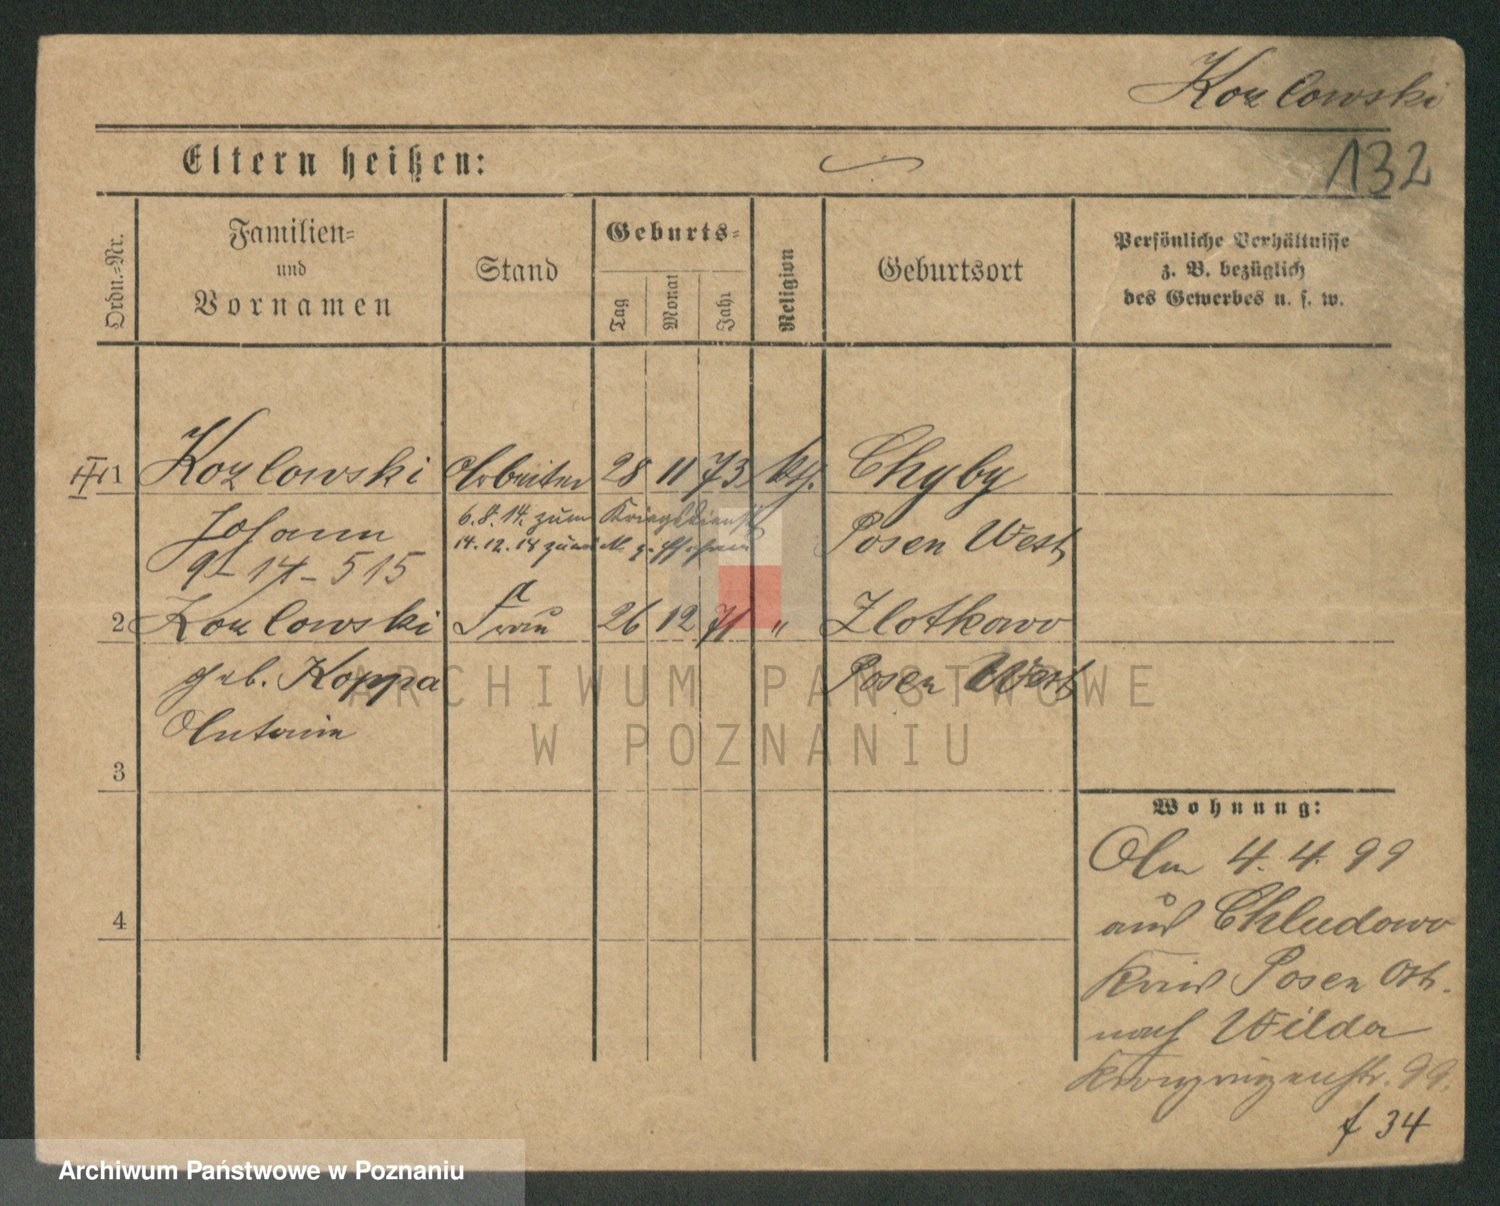 Kozlowski
132
Eltern heißen:
Ordn.-Nr.
Familien-
und
Vornamen
Stand
Geburts-
Tag
Monat
Jahr
Religion
Geburtsort
Persönliche Verhältnisse
z. B. bezüglich
des Gewerbes u. s. w.
1 Kozlowski Arbeiter 28 11 73 kth. Chyby
Johann 6.8.14. zum Kriegsdienst Posen West
9-14-515 14.12.18
2 Kozlowski Frau 26 12 71 " Zlotkowo
geb. Koppa Posen West
Antonie
3
4
Wohnung:
Am 4.4.99
aus Chludowo
Kreis Posen Ost.
nach Wilda
Kronprinzenstr. 99.
f 34
ARCHIWUM PAŃSTWOWE
W POZNANIU
Archiwum Państwowe w Poznaniu